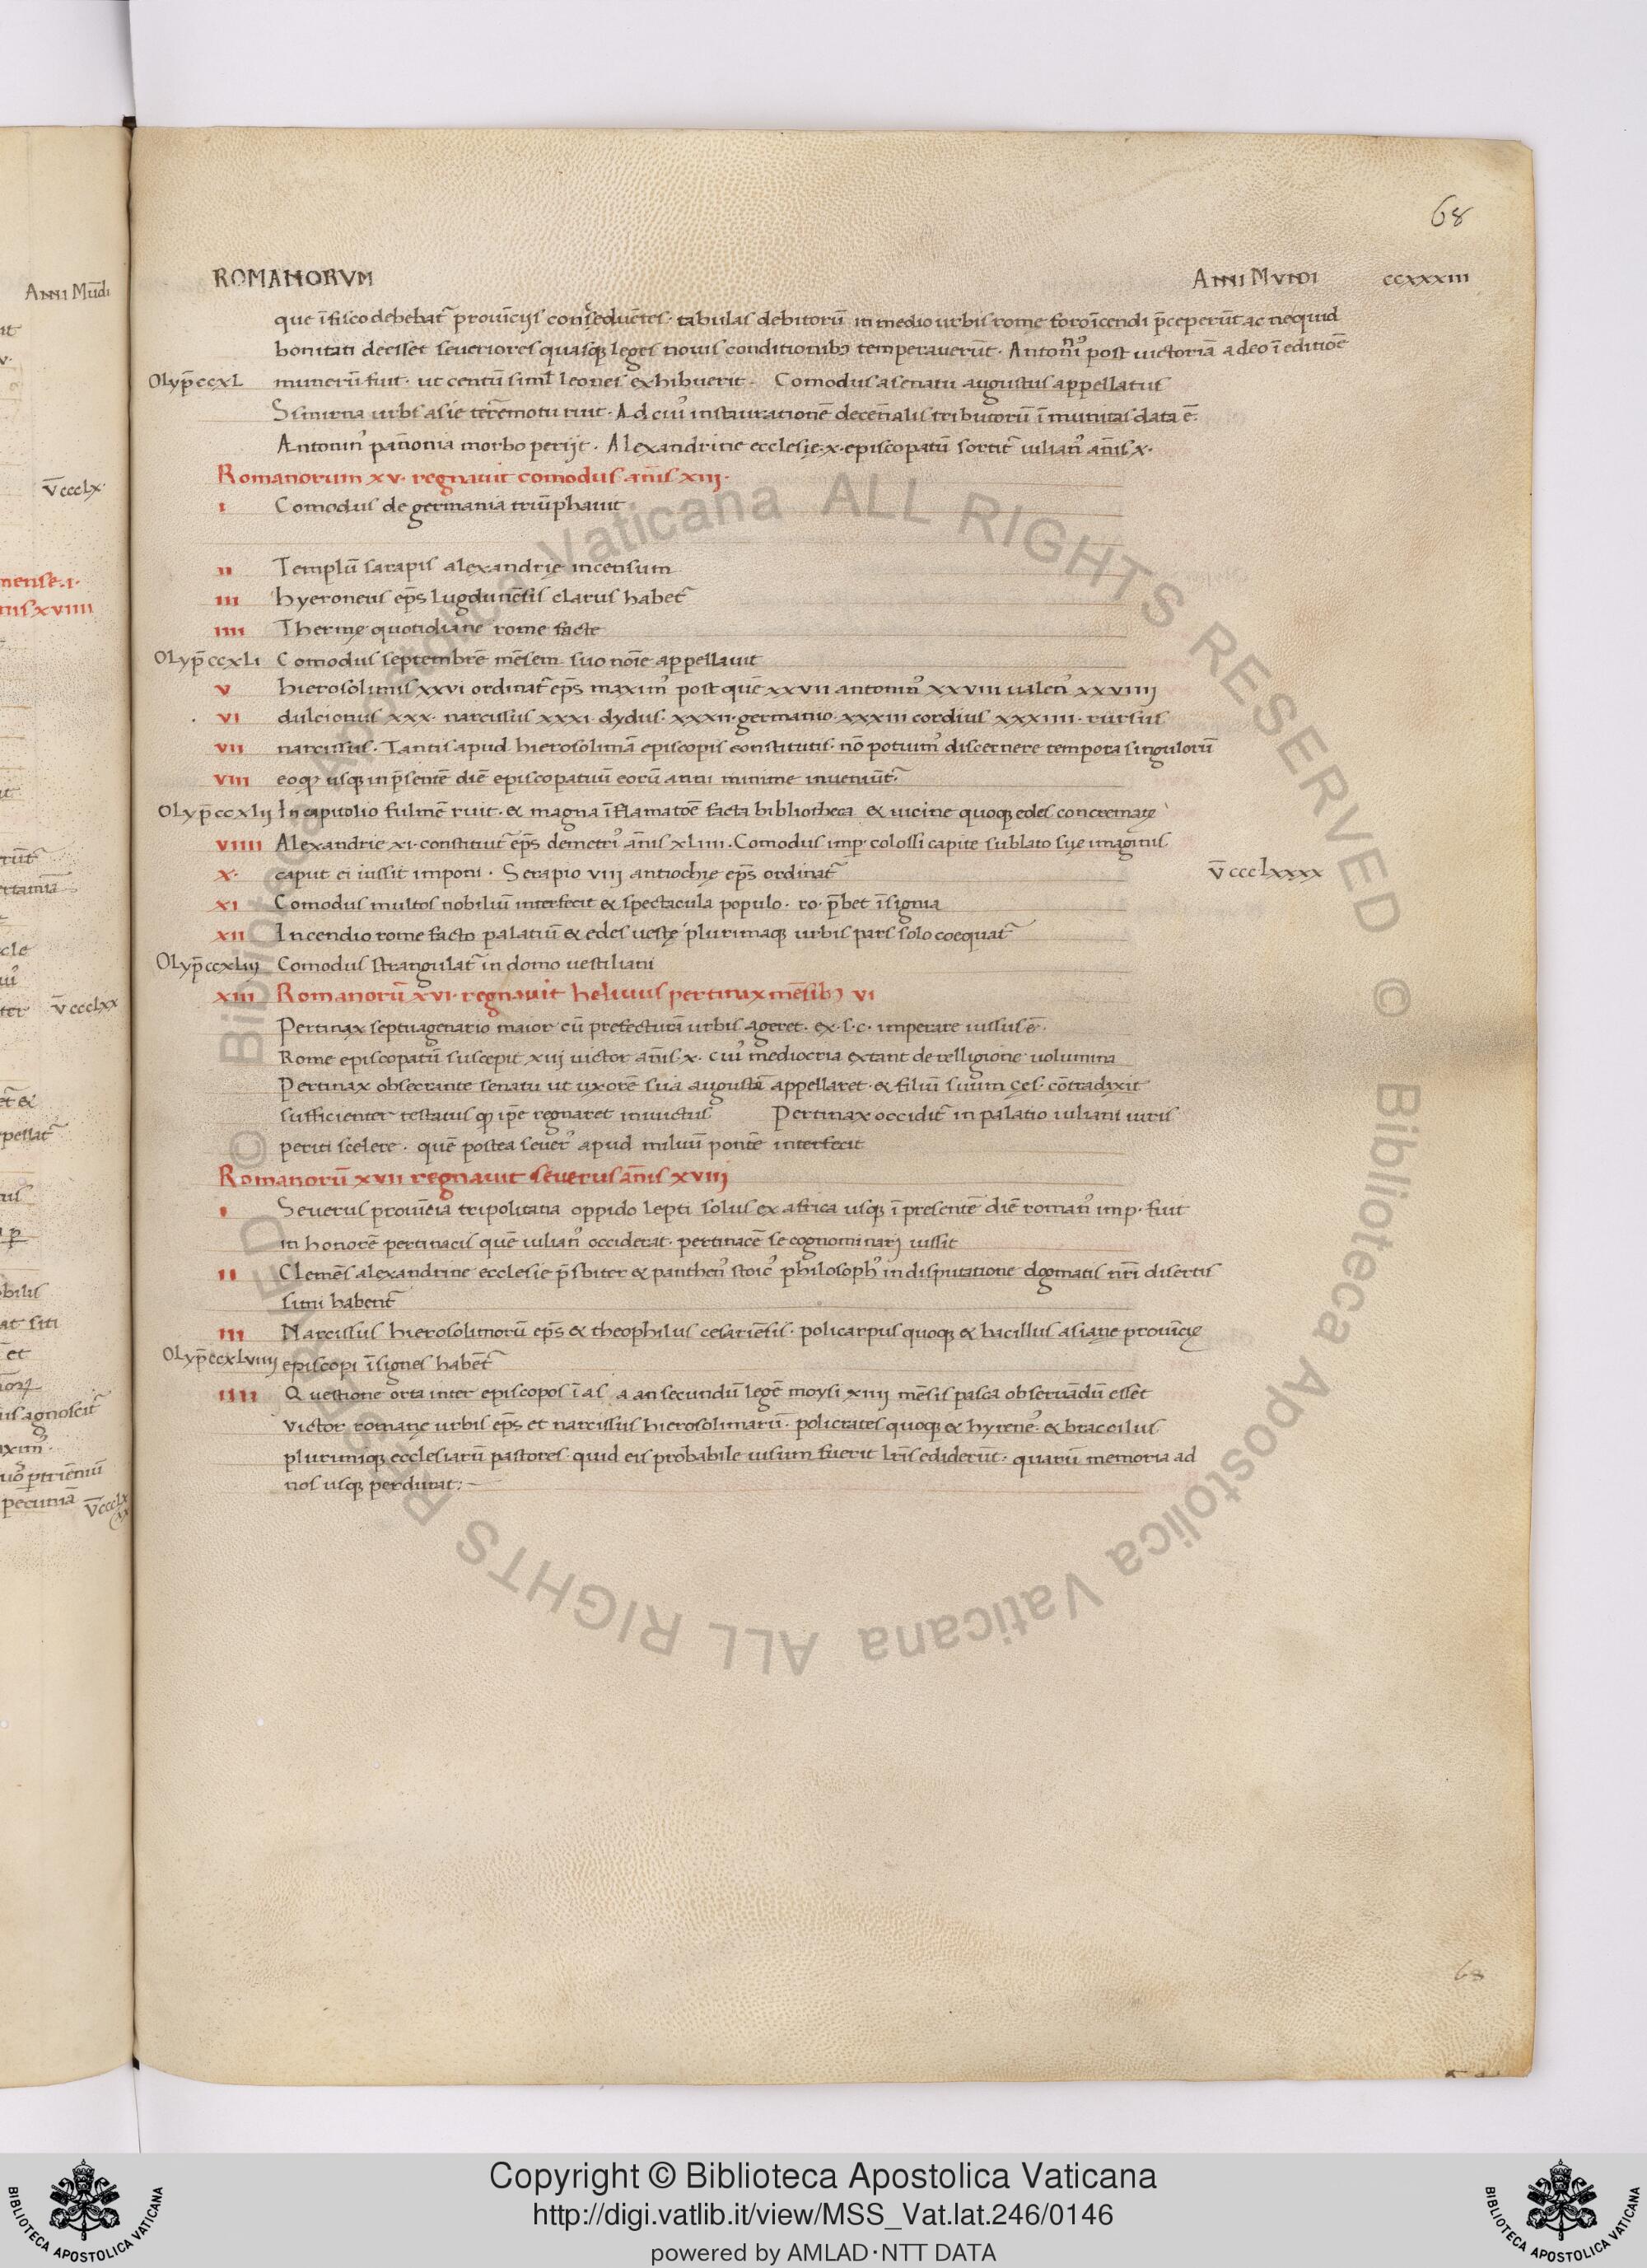 68
ROMANORVM ANNI MVNDI ccxxxiii
que ī fisco debebat᷑ prouīcijs conˢeduc̄tes · tabulas debitorū in medio urbis rome foro īcendi p̄ceperūt ac nequid
bonitati deesset seueriores quasq; leges nouis conditionibꝫ temperauerūt · Antonin᷒ post uictoriā adeo ī editiōe
Olyp̄ ccxl munerū fuit · ut centū siml̄ leones exhibuerit · Comodus a senatu augustus appellatus
Ssmirna urbs asie terēmotu ruit · Ad cui᷒ instaurationē decen̄alis tributorū īmunitas data ē ·
Antonin᷒ pan̄onia morbo perijt · Alexandrine ecclesie · x · episcopatū sortit᷑ iulian᷒ an̄is x ·
Romanorum xv · regnauit comodus an̄is xiii ·
i Comodus de germania triūphauit
ii Templū sarapis alexandrie incensum
iii hyeroneus ep̄s lugdunēsis clarus habet᷑
iiii Therme quotidiane rome facte
Olyp̄ ccxli Comodus septembrē mēsem suo noīe appellauit
v hierosolimis xxvi ordinat᷑ ep̄s maxim᷒ post quē xxvii antonin᷒ xxviii ualen᷒ xxviiii
vi dulcionus xxx · narcissus xxxi · dydus · xxxii · germanio · xxxiii cordius xxxiiii · rursus
vii narcissus · Tantis apud hierosolimā episcopis constitutis · nō potuim᷒ discernere tempora singulorū
viii eoq usq; in p̄sentē diē episcopatuū eorū anni minime inueniūt᷑ ·
Olyp̄ ccxlij In capitolio fulmē ruit · & magna īflamatōe facta bibliotheca & uicine quoq; edes concremate
viiii Alexandrie xi · constituit᷑ ep̄s demetri᷒ an̄is xliiii · Comodus imp · colossi capite sublato sue imaginis
x · caput ei iussit imponi · Serapio viii antiochie ep̄s ordinat᷑ v̄ccclxxxx
xi Comodus multos nobiliū interfecit & spectacula populo · ro · p̄bet īsignia
xii Incendio rome facto palatiū & edes ueste plurimaq; urbis pars solo coequat᷑
Olyp̄ ccxliij Comodus strangulat᷑ in domo uestiliani
xiii Romanorū xvi · regnauit heliuus pertinax mēsibꝫ vi
Pertinax septuagenario maior cū prefecturā urbis ageret · ex · s · c · imperare iussus ē ·
Rome episcopatū suscepit xiij uictor an̄is · x · cui᷒ mediocria extant de relligione uolumina
Pertinax obsecrante senatu ut uxorē suā augustā appellaret · & filiū suum ces · cōtradixit
sufficienter testatus q ip̄e regnaret inuictus Pertinax occidit᷑ in palatio iuliani iuris
periti scelere · quē postea seuer᷒ apud miluiū pontē interfecit
Romanorū xvii regnauit seuerus an̄is xviii
i Seuerus prouīcia tripolitana oppido lepti solus ex africa usq; ī presentē diē roman᷒ imp · fuit
in honorē pertinacis quē iulian᷒ occiderat · pertinacē se cognominarj iussit
ii Clemēs alexandrine ecclesie p̄sbiter & panthen᷒ stoic᷒ philosoph᷒ in disputatione dogmatis nr̄i disertis
simi habent᷑
iii Narcissus hierosolimorū ep̄s & theophilus cesariēsis · policarpus quoq; & bacillus asiane prouīcie
Olyp̄ ccxlviiij episcopi īsignes habēt᷑
iiii Questione orta inter episcopos ī as a an secundū legē moysi xiiij mēsis pasca obseruādū esset
victor romane urbis ep̄s et narcissus hierosolimarū · policrates quoq; & hyrene᷒ · & braccilus
plurimiq; ecclesiarū pastores · quid eis probabile uisum fuerit lr̄is ediderūt · quarū memoria ad
nos usq; perdurat : —
68
Anni Mūdi
v̄cccclx ·
mense · i ·
nis xviiii
v̄cccclxx
© Biblioteca Apostolica Vaticana ALL RIGHTS RESERVED © Biblioteca Apostolica Vaticana ALL RIGHTS RESERVED
Copyright © Biblioteca Apostolica Vaticana
http://digi.vatlib.it/view/MSS_Vat.lat.246/0146
powered by AMLAD·NTT DATA
BIBLIOTECA APOSTOLICA VATICANA
BIBLIOTECA APOSTOLICA VATICANA